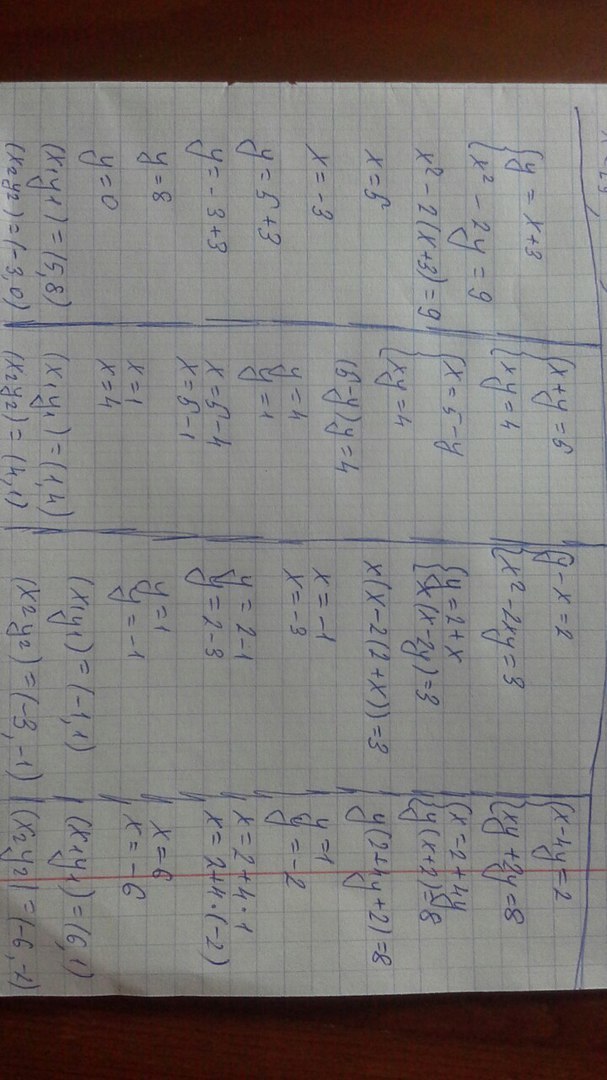 {y = x+3
{x² - 2y = 9
x² - 2(x+3) = 9
x=5
x=-3
y=5+3
y=-3+3
y=8
y=0
(x₁y₁)=(5,8)
(x₂y₂)=(-3,0)
{x+y=5
{xy=4
{x=5-y
{xy=4
(5-y)y=4
y=4
y=1
x=5-4
x=5-1
x=1
x=4
(x₁y₁)=(1,4)
(x₂y₂)=(4,1)
{y-x=2
{x²-2xy=3
{y=2+x
{x(x-2y)=3
x(x-2(2+x))=3
x=-1
x=-3
y=2-1
y=2-3
y=1
y=-1
(x₁y₁)=(-1,1)
(x₂y₂)=(-3,-1)
{x-4y=2
{xy+2y=8
{x=2+4y
{y(x+2)=8
y(2+4y+2)=8
y=1
y=-2
x=2+4·1
x=2+4·(-2)
x=6
x=-6
(x₁y₁)=(6,1)
(x₂y₂)=(-6,-2)